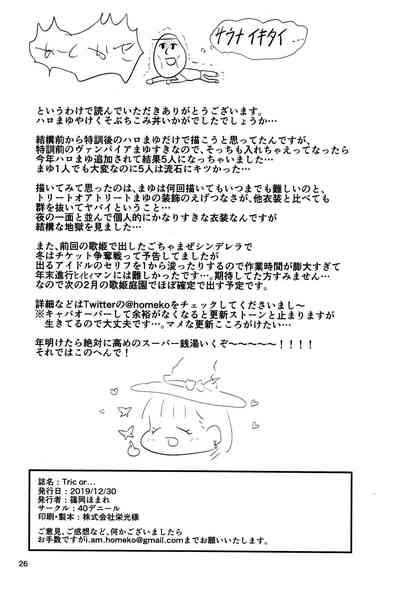 サウナイキタイ…
というわけで読んでいただきありがとうございます。
ハロまゆやけくそぶちこみ丼いかがでしたでしょうか…
結構前から特訓後のハロまゆだけで描こうと思ってたんですが、
特訓前のヴァンパイアまゆすきなので、そっちも入れちゃえってなったら
今年ハロまゆ追加されて結果5人になっちゃいました…
まゆ1人でも大変なのに5人は流石にキツかった…
描いてみて思ったのは、まゆは何回描いてもいつまでも難しいのと、
トリートオアトリートまゆの装飾のえげつなさが、他衣装と比べても
群を抜いてヤバイということ…
夜の一面と並んで個人的にかなりすきな衣装なんですが
結構な地獄を見ました…
また、前回の歌姫で出したごちゃまぜシンデレラで
冬はチケット争奪戦って予告してましたが
出るアイドルのセリフを1から浚ったりするので作業時間が膨大すぎて
年末進行ﾋｨﾋｨマンには難しかったです…。期待してた方すみません…
なので次の2月の歌姫庭園でほぼ確定で出す予定です。
詳細などはTwitterの@homekoをチェックしてくださいまし～
※キャパオーバーして余裕がなくなると更新ストーンと止まりますが
生きてるので大丈夫です…。マメな更新こころがけたい…
年明けたら絶対に高めのスーパー銭湯いくぞ～～～～～！！！！
それではこのへんで！
誌名：Tric or…
発行日：2019/12/30
発行者：篠岡ほまれ
サークル：40デニール
印刷・製本：株式会社栄光様
ご意見、ご感想など、何かございましたら
お手数ですがi.am.homeko@gmail.comまでお願いいたします。
26